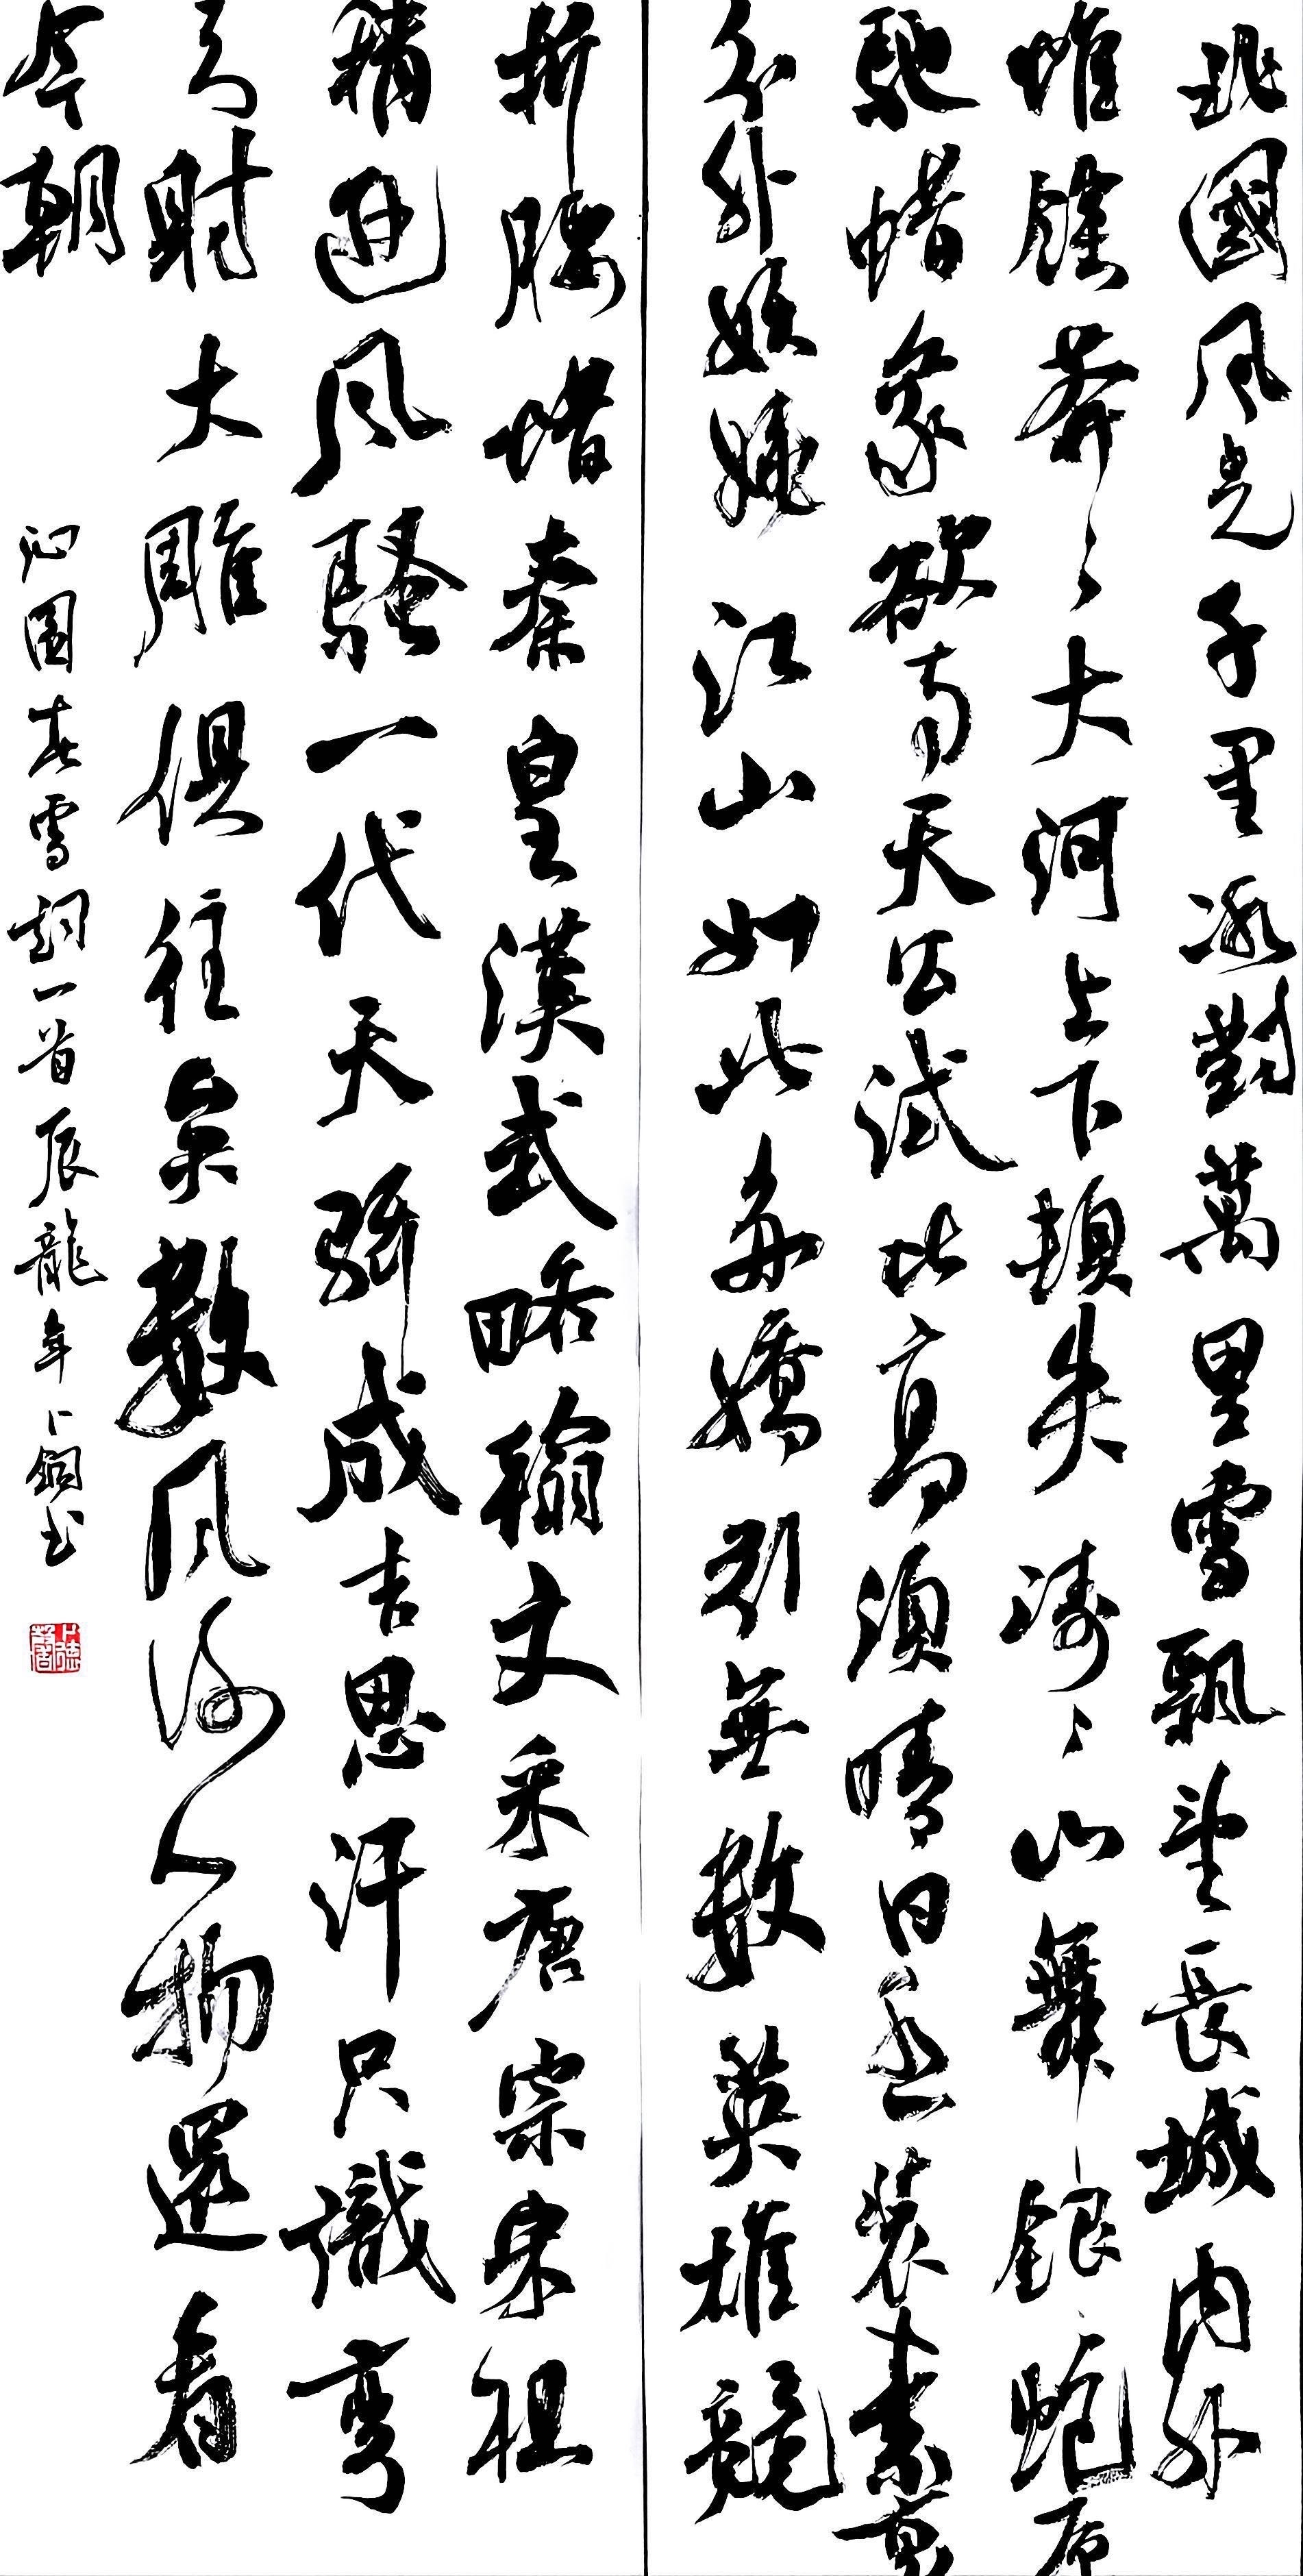 北國风光千里冰封萬里雪飄望長城內外
惟餘莽〻大河上下頓失濤〻山舞銀蛇原
馳蜡象欲与天公試比高須晴日裝素裹
分外妖嬈江山如此多嬌引無數英雄競
折腰惜秦皇漢武略輸文采唐宗宋祖
稍遜风騷一代天驕成吉思汗只識彎
弓射大雕俱往矣數风流人物還看
今朝
沁園春雪詞一首辰龍年卜鋼书